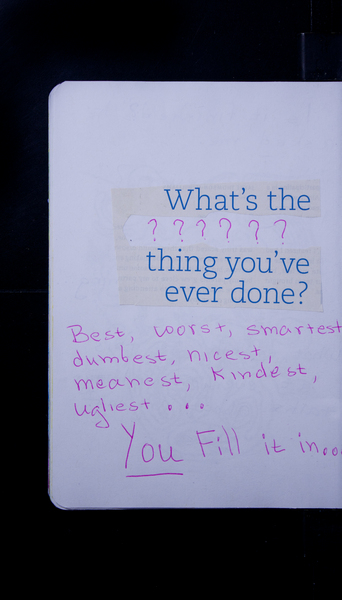 What's the
? ? ? ? ? ?
thing you've
ever done?
Best, worst, smartest
dumbest, nicest,
meanest, Kindest,
ugliest ...
You Fill it in...